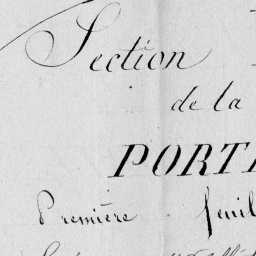 Section
de la
PORTE
Première feuil